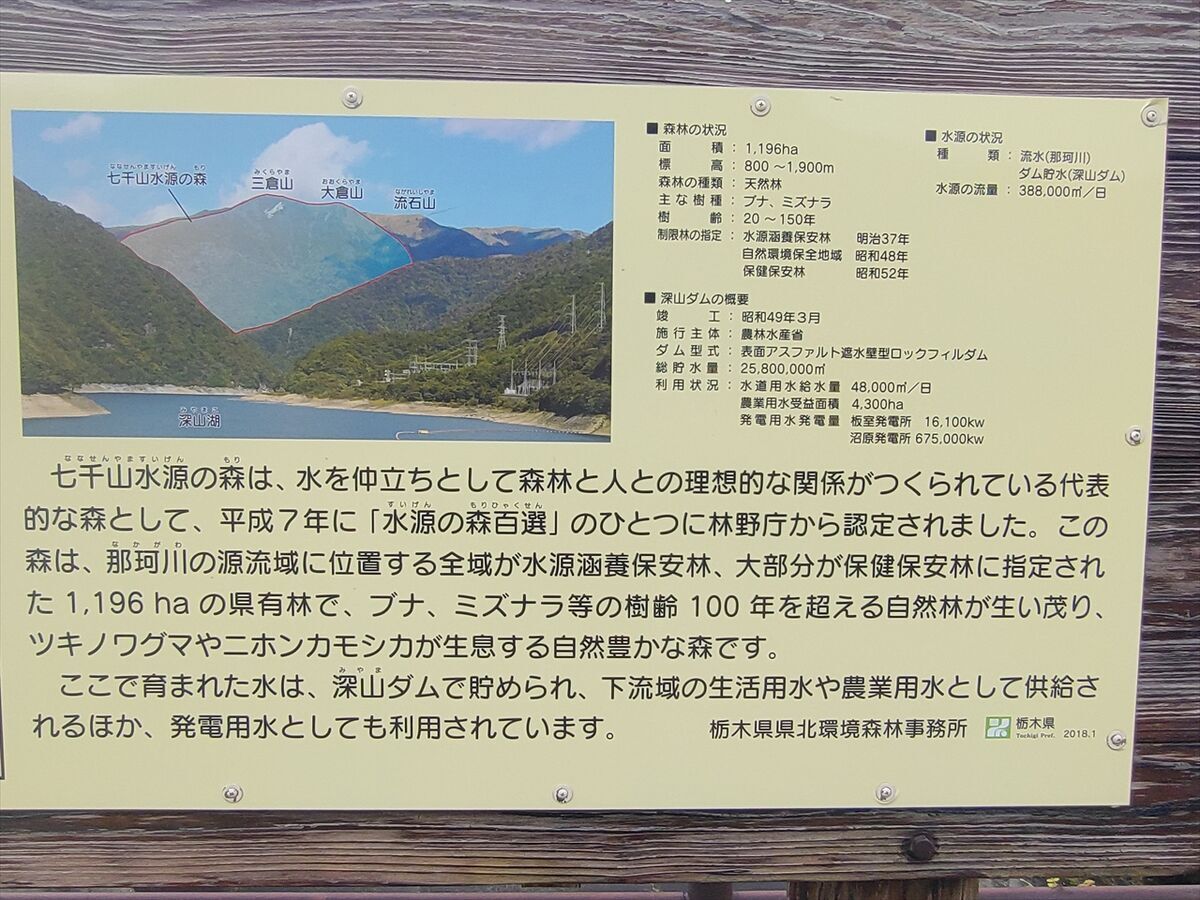 ななせんやますいげん もり
七千山水源の森
みくらやま
三倉山
おおくらやま
大倉山
ながれいしやま
流石山
みやまこ
深山湖
■ 森林の状況
面積 : 1,196ha
標高 : 800 ～1,900m
森林の種類 : 天然林
主な樹種 : ブナ、ミズナラ
樹齢 : 20 ～ 150年
制限林の指定 : 水源涵養保安林 明治37年
自然環境保全地域 昭和48年
保健保安林 昭和52年
■ 水源の状況
種類 : 流水(那珂川)
ダム貯水(深山ダム)
水源の流量 : 388,000㎥／日
■ 深山ダムの概要
竣工 : 昭和49年３月
施行主体 : 農林水産省
ダム型式 : 表面アスファルト遮水壁型ロックフィルダム
総貯水量 : 25,800,000㎥
利用状況 : 水道用水給水量 48,000㎥／日
農業用水受益面積 4,300ha
発電用水発電量 板室発電所 16,100kw
沼原発電所 675,000kw
ななせんやますいげん もり
七千山水源の森は、水を仲立ちとして森林と人との理想的な関係がつくられている代表
すいげん もりひゃくせん
的な森として、平成７年に「水源の森百選」のひとつに林野庁から認定されました。この
なかがわ
森は、那珂川の源流域に位置する全域が水源涵養保安林、大部分が保健保安林に指定され
た 1,196 ha の県有林で、ブナ、ミズナラ等の樹齢 100 年を超える自然林が生い茂り、
ツキノワグマやニホンカモシカが生息する自然豊かな森です。
みやま
ここで育まれた水は、深山ダムで貯められ、下流域の生活用水や農業用水として供給さ
れるほか、発電用水としても利用されています。 栃木県県北環境森林事務所 栃木県
Tochigi Pref. 2018.1